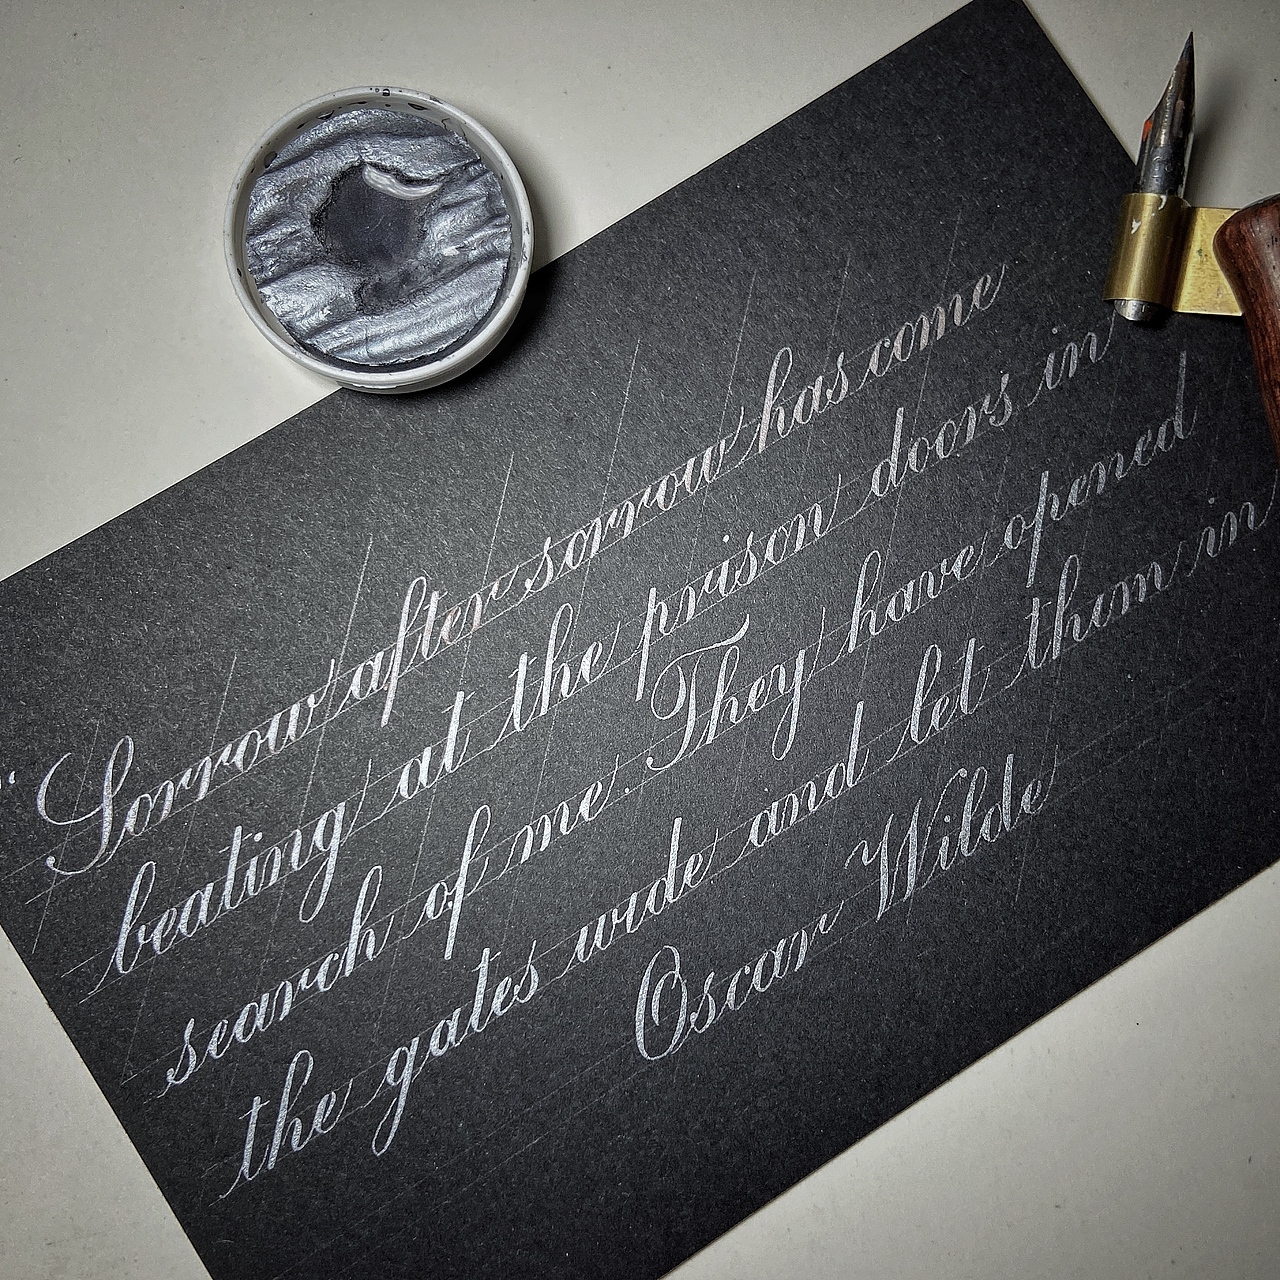 "Sorrow after sorrow has come
beating at the prison doors in
search of me. They have opened
the gates wide and let them in
Oscar Wilde